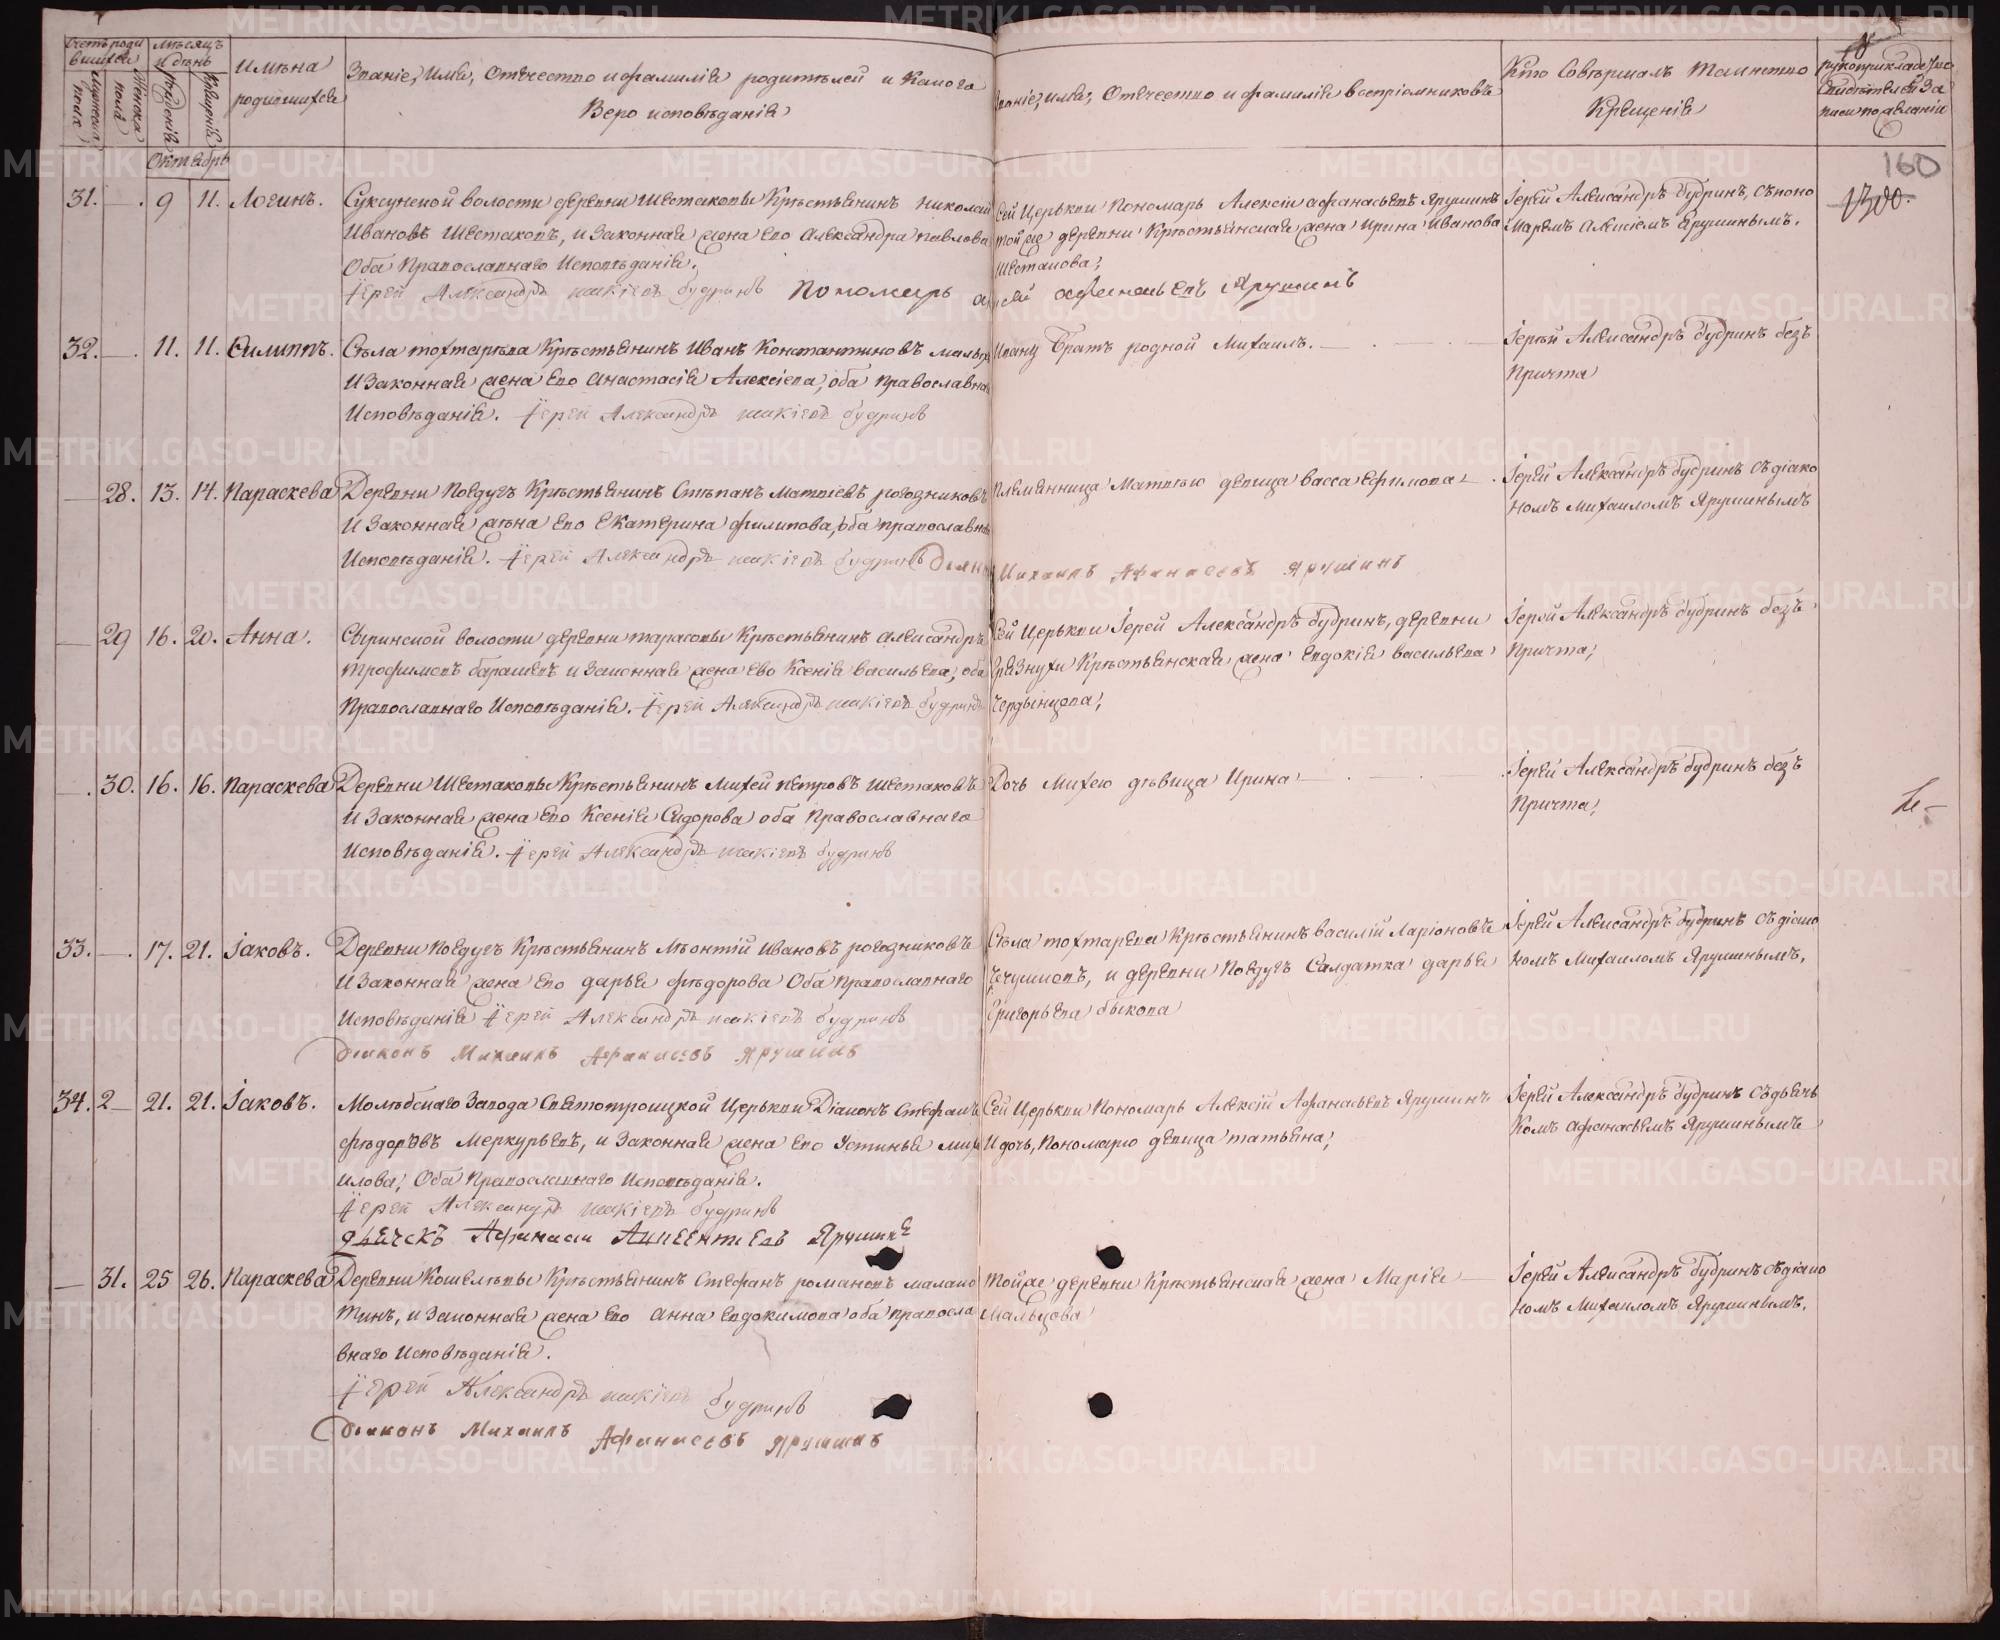 Счетъ роди
вшихся
Мужеска
пола
Женска
пола
мѣсяцъ
и день
рожденія
Крещенія
Имѣна
родившихся
Званіе, имя, Отечество и фамилія родителей и Какого
Веро исповѣданія
Званіе, имя, Отечество и фамилія воспріемниковъ
Кто Совершалъ Таинство
Крещенія
рукоприкладство
Свидѣтелей за
писи по желанію
160
Октябрь
31. 9 11. Логинъ. Суксунской волости деревни Шестаковы Крѣстьянинъ Николай
Ивановъ Шестаковъ, и Законная жена Его Александра Павлова
Оба Православнаго Исповѣданія.
Іерей Александръ Будринъ Пономарь
Сей Церькви Пономарь Алексій Афанасьевъ Ярушинъ
той же деревни Крѣстьянская жена Ирина Иванова
Шестакова;
Ярушинъ
Іерей Александръ Будринъ, съ поно
маремъ Алексіемъ Ярушинымъ.
1300.
32. 11. 11. Филиппъ. Сѣла тохтарѣва Крѣстьянинъ Иванъ Константиновъ
И Законная жена Его Анастасія Алексіева, оба Православна
Исповѣданія. Іерей Александръ Будринъ
Ивану братъ родной Михаилъ.
Іерей Александръ Будринъ безъ
Причта
28. 13. 14. Параскева Деревни Поедугъ Крѣстьянинъ Стѣпанъ Матвіевъ рогозниковъ
И Законная жена Его Екатерина филипова, оба православна
Исповѣданія. Іерей Александръ Будринъ
Племянница Матвѣю девица васса Ефимова
Михаилъ Афанасьевъ Ярушинъ
Іерей Александръ Будринъ съ діако
номъ Михаиломъ Ярушинымъ
29 16. 20. Анна. Сыринской волости деревни тарасовы Крѣстьянинъ Александръ
Трофимовъ барашевъ и Законная жена Ево Ксенія васильева, оба
Православнаго Исповѣданія. Іерей Александръ Будринъ
Сей Церькви Іерей Александръ Будринъ, деревни
грязнухи Крѣстьянская жена Евдокія васильева
Чердынцева;
Іерей Александръ Будринъ безъ
Причта;
30. 16. 16. Параскева Деревни Шестаковы Крѣстьянинъ Михей петровъ Шестаковъ
И Законная жена Его Ксенія Сидорова оба Православнаго
Исповѣданія. Іерей Александръ Будринъ
Дочь Михею дѣвица Ирина
Іерей Александръ Будринъ безъ
Причта,
33. 17. 21. Іаковъ. Деревни Поедугъ Крѣстьянинъ Леонтій Ивановъ рогозниковъ
И Законная жена Его дарья фѣдорова Оба православнаго
Исповѣданія Іерей Александръ Будринъ
Діаконъ Михаилъ Афанасьевъ Ярушинъ
Сѣла тохтарева Крѣстьянинъ василій Ларіоновъ
и деревни Поедугъ Салдатка дарья
Григорьева быкова
Іерей Александръ Будринъ съ діако
номъ Михаиломъ Ярушинымъ,
34. 2 21. 21. Іаковъ. Молѣбскаго Завода Святотроицкой Церькви Діаконъ Стефанъ
фѣдоровъ Меркурьевъ, и Законная жена Его Устинья миха
илова, Оба Православнаго Исповѣданія.
Іерей Александръ Будринъ
дьячекъ Афанасій Ярушинъ
Сей Церькви Пономарь Алексій Афанасьевъ Ярушинъ
И дочь Пономарю девица татьяна;
Іерей Александръ Будринъ съ дьяч
комъ Афанасьемъ Ярушинымъ
31. 25 26. Параскева Деревни Кошелѣвы Крѣстьянинъ Стефанъ романовъ малахо
тинъ, и Законная жена Его Анна Евдокимова оба правосла
внаго Исповѣданія.
Іерей Александръ Будринъ
Діаконъ Михаилъ Афанасьевъ Ярушинъ
Той же деревни Крѣстьянская жена Марія
Мальцова
Іерей Александръ Будринъ съ діако
номъ Михаиломъ Ярушинымъ,
METRIKI.GASO-URAL.RU